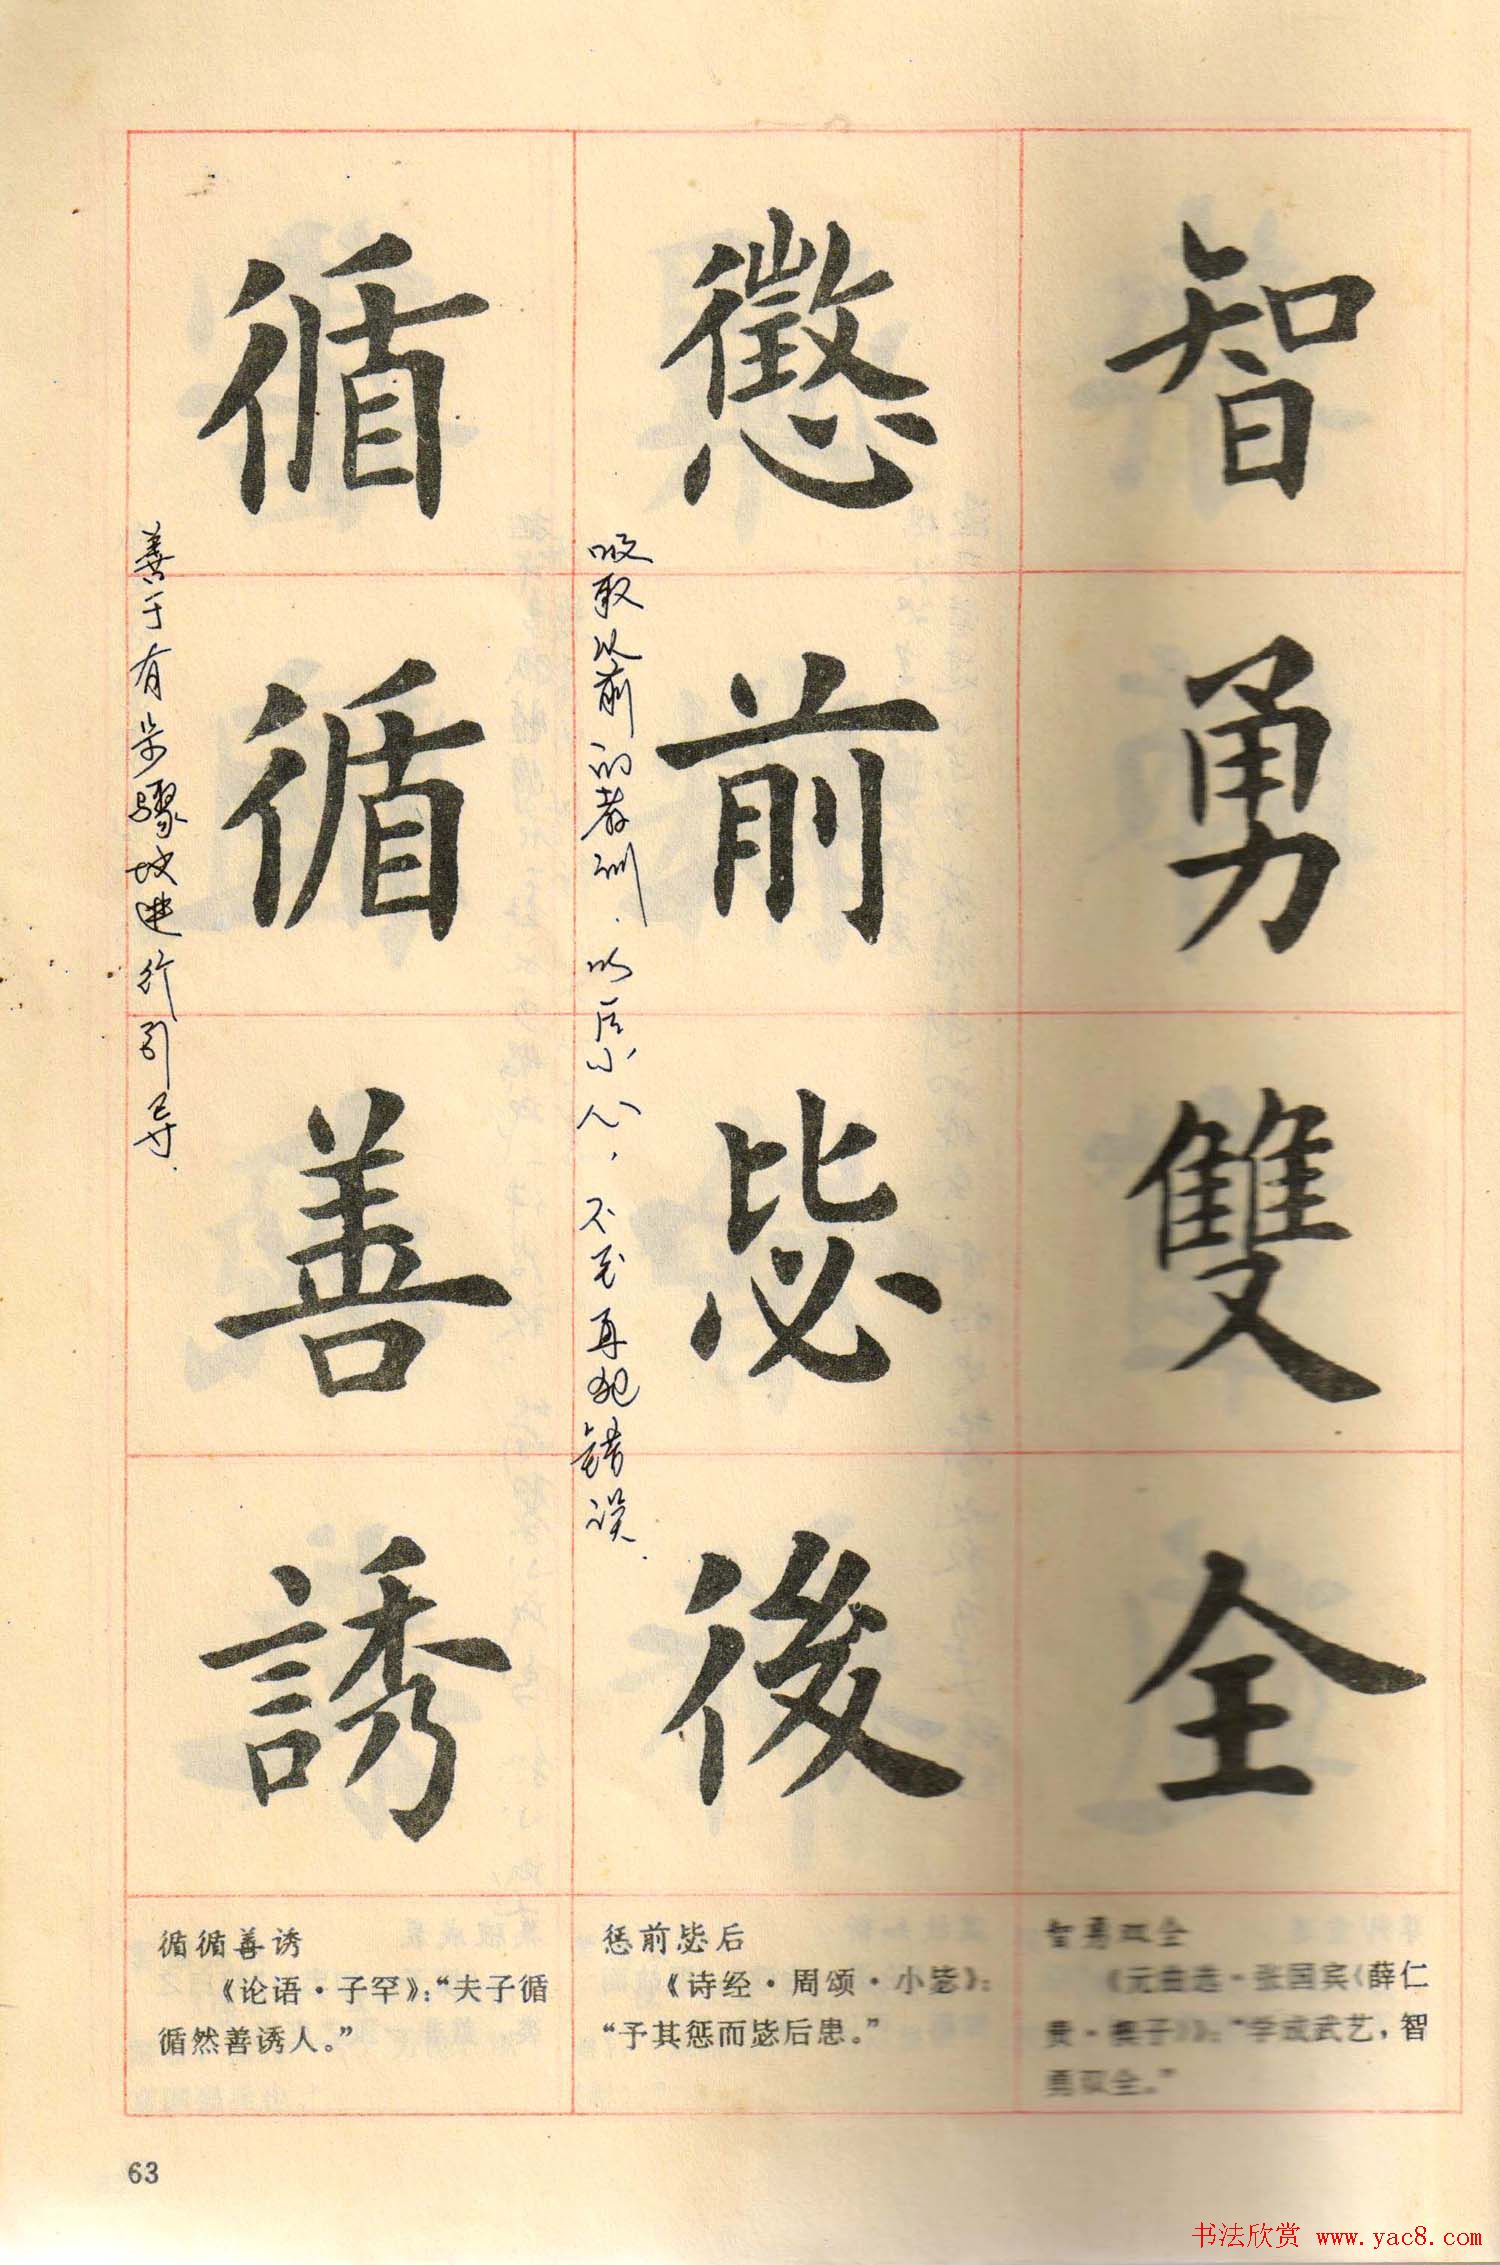 智勇雙全
懲前毖後
吸取以前的教训.以后小心,不至再犯错误.
循循善誘
善于有步骤地进行引导.
智勇双全
《元曲选·张国宾〈薛仁
贵·楔子〉》:“学成武艺,智
勇双全。”
惩前毖后
《诗经·周颂·小毖》:
“予其惩而毖后患。”
循循善诱
《论语·子罕》:“夫子循
循然善诱人。”
63
书法欣赏 www.yac8.com